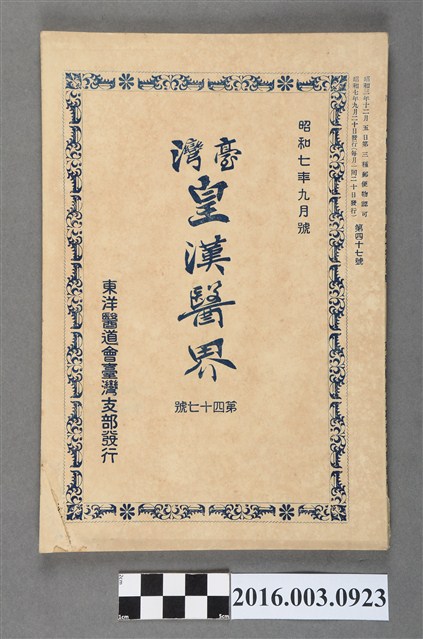 昭和三年十二月五日第三種郵便物認可
昭和七年九月二十日發行(每月一回二十日發行)
第四十七號
昭和七年九月號
臺灣
皇漢醫界
第四十七號
東洋醫道會臺灣支部發行
2016.003.0923